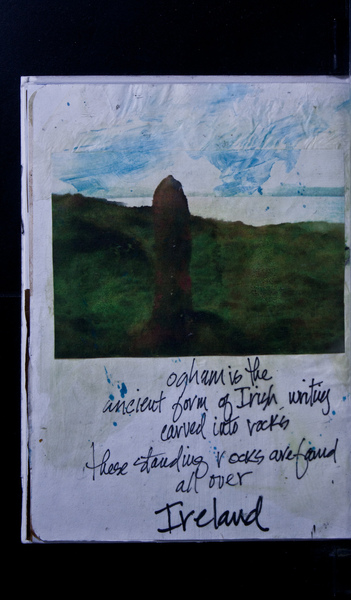 ogham is the
ancient form of Irish writing
carved into rocks
these standing rocks are found
all over
Ireland